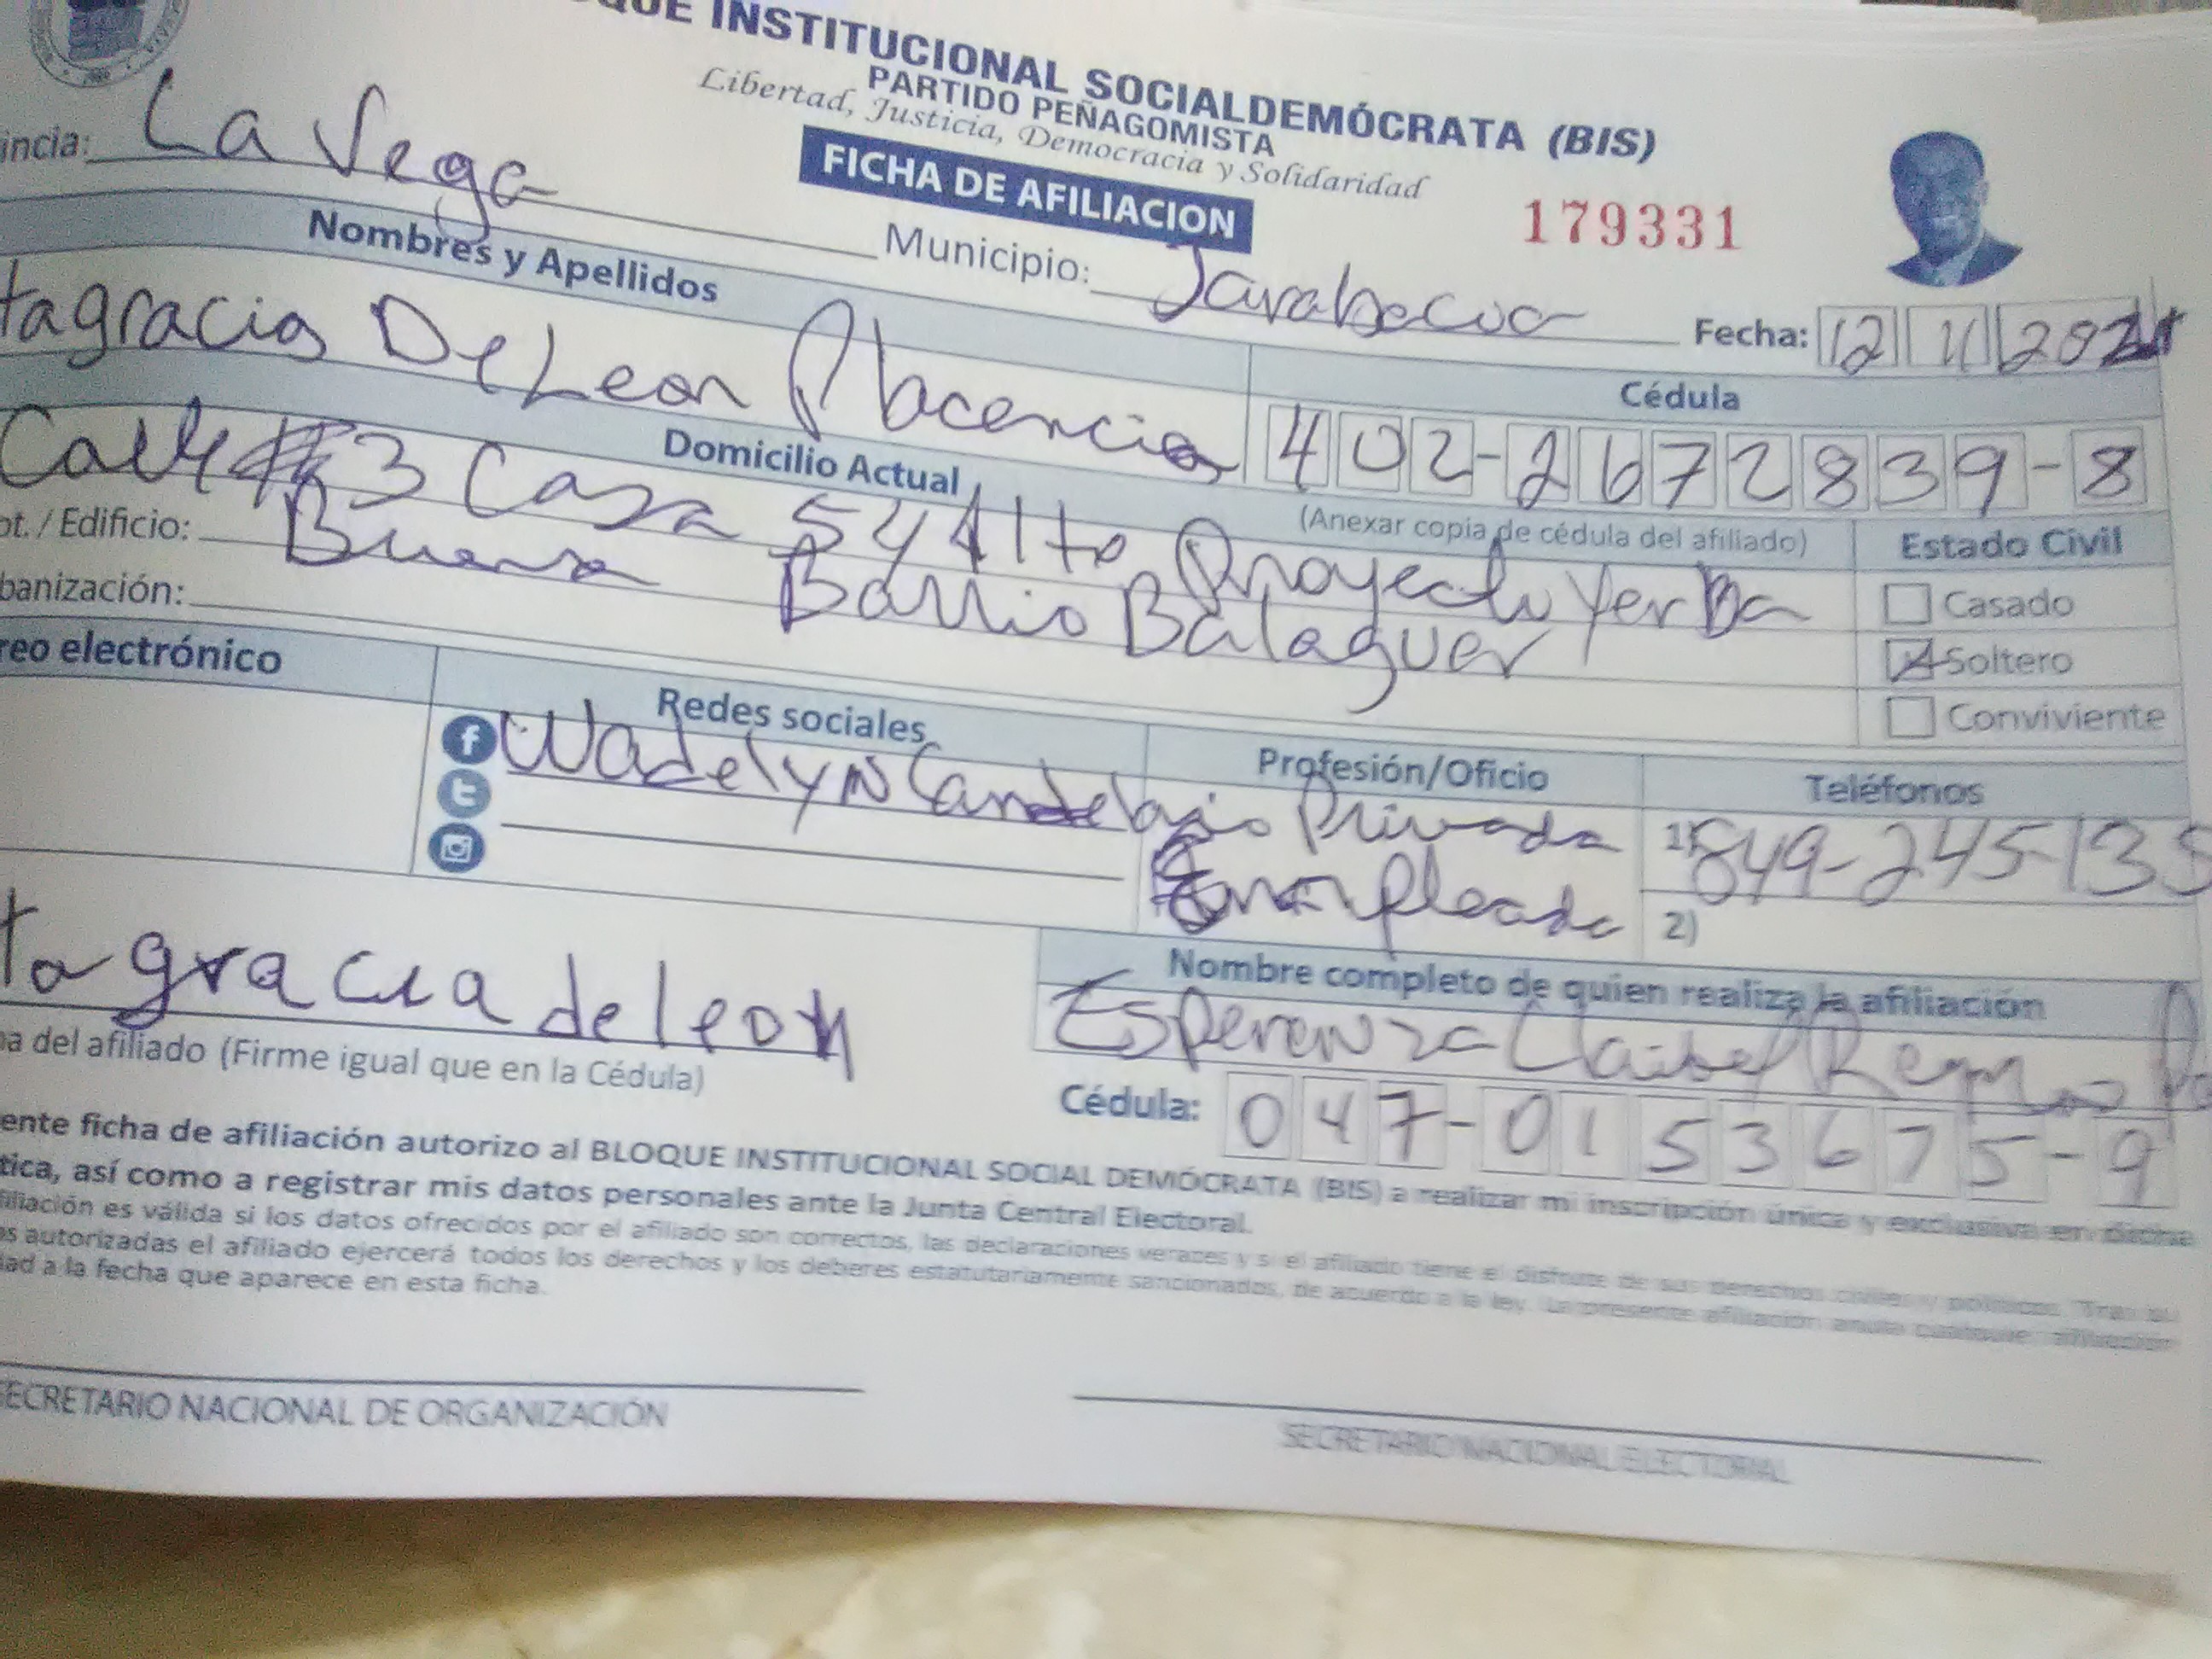 QUE INSTITUCIONAL SOCIALDEMÓCRATA (BIS)
PARTIDO PEÑAGOMISTA
Libertad, Justicia, Democracia y Solidaridad
FICHA DE AFILIACION
179331
incia: La Vega
Municipio: Jarabacoa
Fecha: 12 11
Nombres y Apellidos
Cédula
tagracia De Leon Placencia
402-2672839-8
Domicilio Actual
(Anexar copia de cédula del afiliado)
Estado Civil
Calle #3 Casa 54 Alto Proyecto Yerba
ot. / Edificio: Buena Barrio Balaguer
banización:
Casado
Soltero
Conviviente
reo electrónico
Redes sociales
Profesión/Oficio
Teléfonos
Wadelyn Candelario
Privada
Empleada
1) 849-245-135
2)
tagracia deleon
na del afiliado (Firme igual que en la Cédula)
Nombre completo de quien realiza la afiliación
Esperanza
Cédula: 047-0153675-9
ente ficha de afiliación autorizo al BLOQUE INSTITUCIONAL SOCIAL DEMÓCRATA (BIS) a realizar mi inscripción única y exclusiva en dicha
tica, así como a registrar mis datos personales ante la Junta Central Electoral.
filiación es válida si los datos ofrecidos por el afiliado son correctos, las declaraciones veraces y si el afiliado tiene el disfrute de sus derechos civiles y políticos. Tras su
as autorizadas el afiliado ejercerá todos los derechos y los deberes estatutariamente sancionados, de acuerdo a la ley. La presente afiliación anula cualquier afiliación
dad a la fecha que aparece en esta ficha.
SECRETARIO NACIONAL DE ORGANIZACIÓN
SECRETARIO NACIONAL ELECTORAL